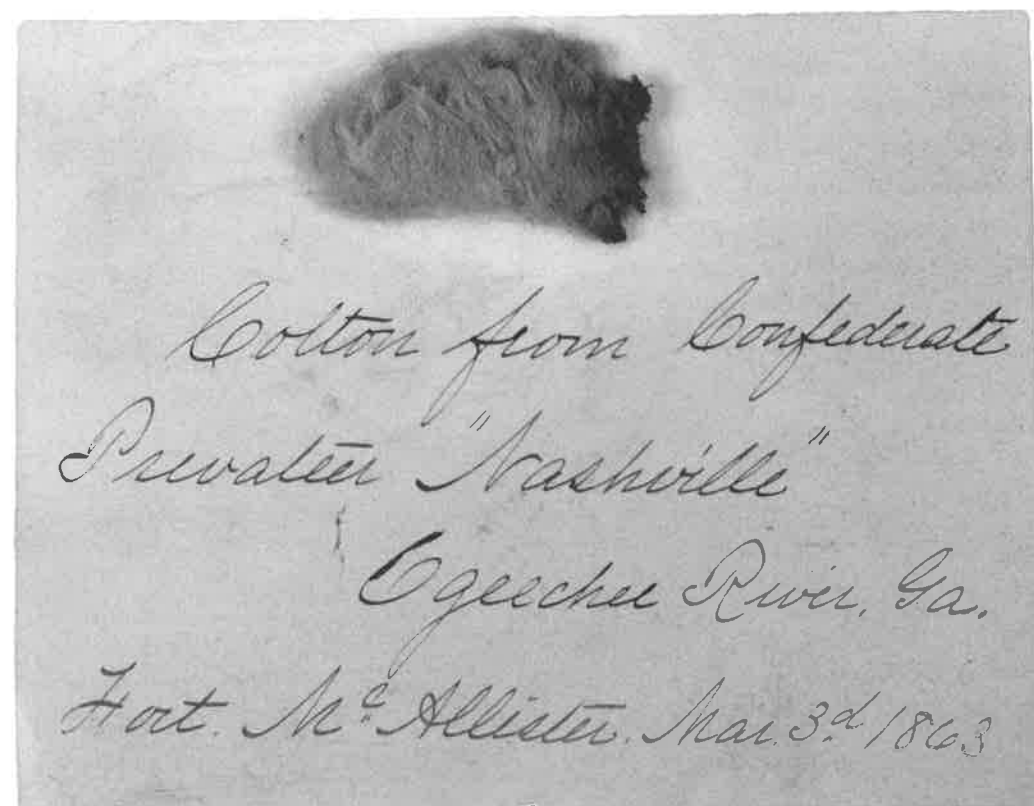 Cotton from Confederate
Privateer "Nashville"
Ogeechee River, Ga.
Fort. Mc Allister. Mar. 3d 1863